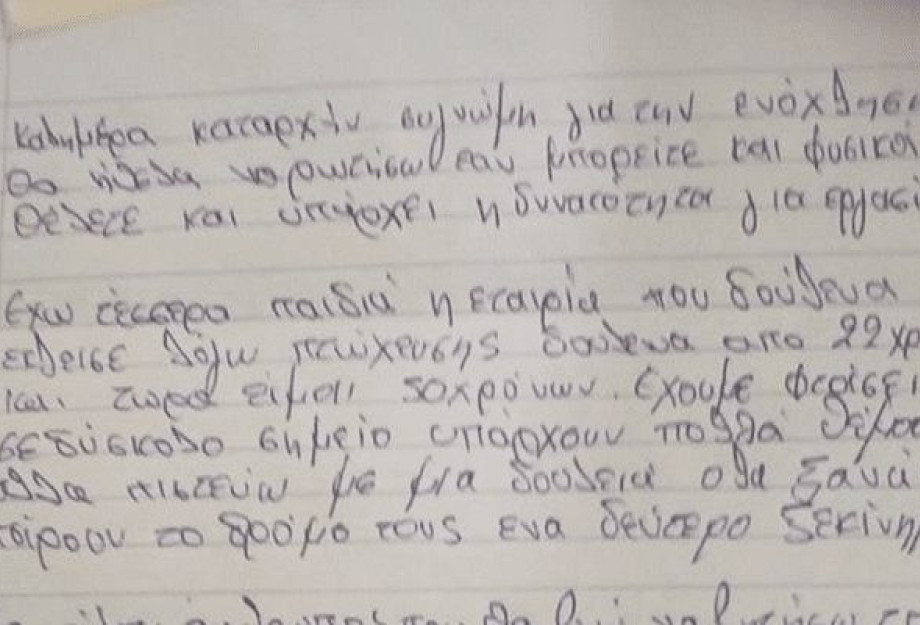 καλημέρα καταρχήν συγνώμη για την ενόχληση
θα ήθελα να ρωτήσω εαν μπορείτε και φυσικοί
θέλετε και υπάρχει η δυνατότητα για εργασί
Εχω τέσσερα παιδιά η εταιρία που δούλευα
εκλεισε λόγω πτώχευσης δούλευα απο 22 χρ
και τωρα είμαι 50 χρόνων. Εχουμε φτάσει
σε δύσκολο σημείο υπάρχουν πολλά θέμα
αλλα πιστεύω με μια δουλειά ολα ξανά
πάρουν το δρόμο τους ενα δεύτερο ξεκίνη